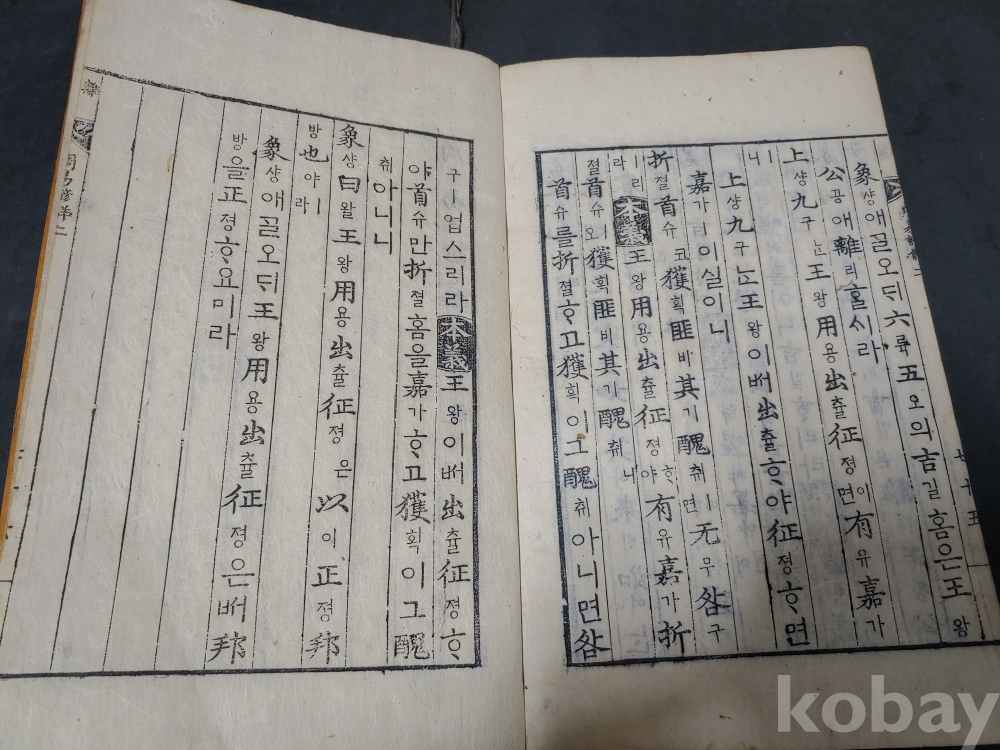 象샹애ᄀᆞᆯ오ᄃᆡ六륙五오의吉길홈은王왕
公공애離리ᄒᆞᆯᄉᆡ라
上샹九구ᄂᆞᆫ王왕用용出츌征졍이면有유嘉가
ㅣ니
上샹九구ᄂᆞᆫ王왕이ᄡᅥ出츌ᄒᆞ야征졍ᄒᆞ면
嘉가ㅣ이실이니
折졀首슈코獲획匪비其기醜취ㅣ면无무咎구
ㅣ리라 本義 王왕用용出츌征졍ᄒᆞ야有유嘉가折
졀首슈오獲획匪비其기醜취니
首슈를折졀ᄒᆞ고獲획이그醜취아니면咎
구ㅣ업스리라 本義 王왕이ᄡᅥ出츌征졍ᄒᆞ
야首슈만折졀홈을嘉가ᄒᆞ고獲획이그醜
취아니니
象샹曰왈王왕用용出츌征졍은以이正졍邦
방也야ㅣ라
象샹애ᄀᆞᆯ오ᄃᆡ王왕用용出츌征졍은ᄡᅥ邦
방을正졍ᄒᆞ요미라
周易諺解 二
kobay